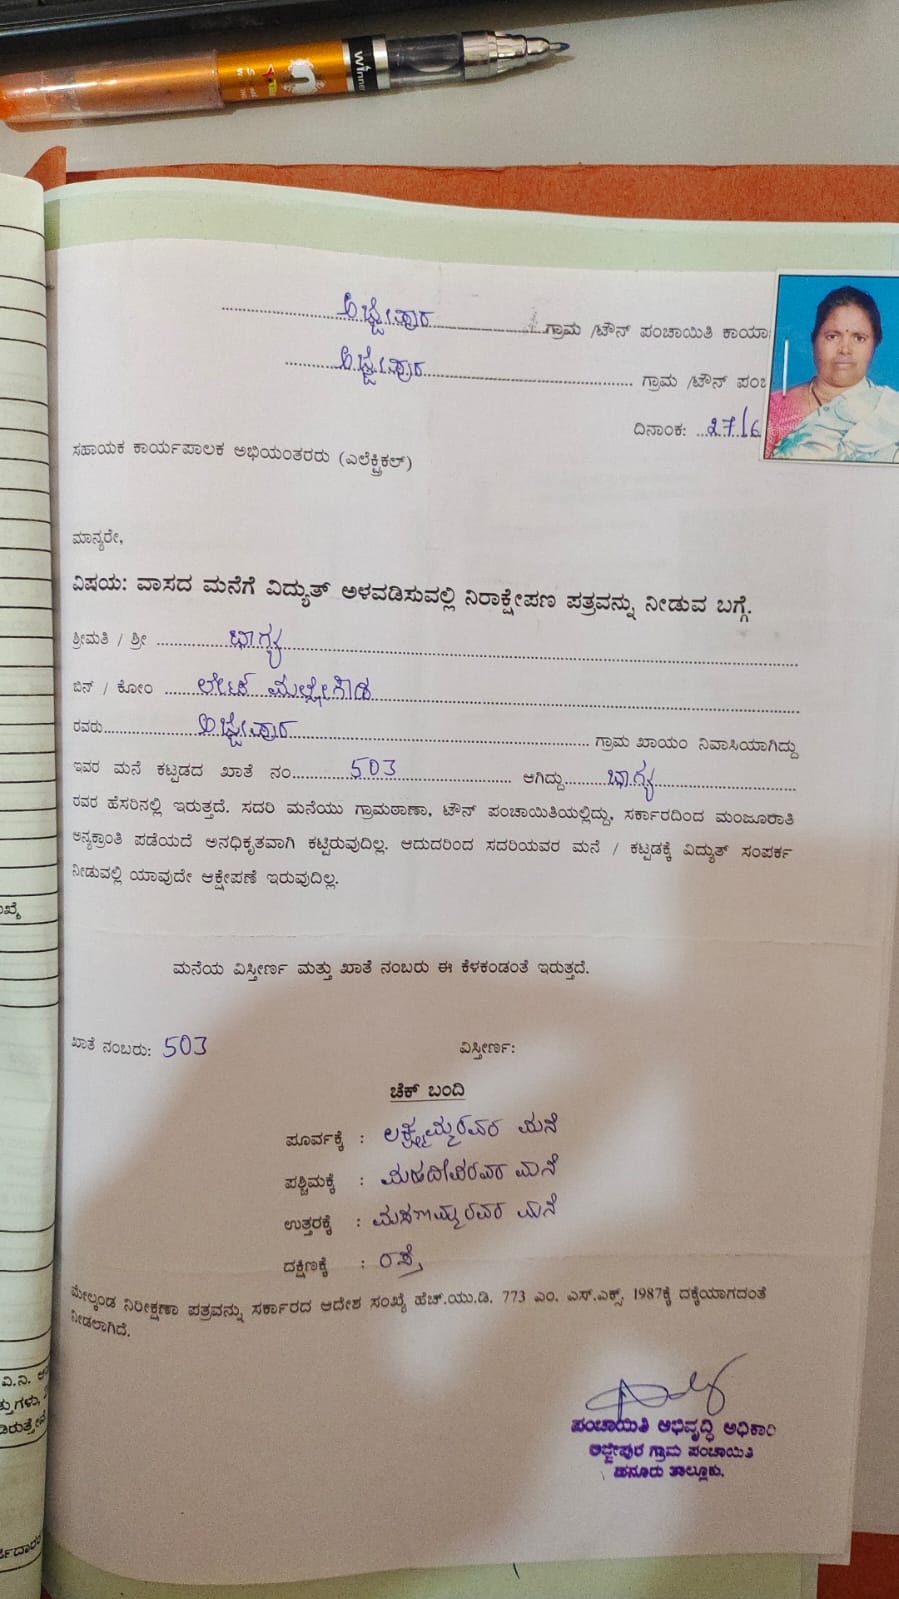 Winner
ಅಜ್ಜೀಪುರ ಗ್ರಾಮ /ಟೌನ್ ಪಂಚಾಯಿತಿ ಕಾರ್ಯಾ
ಅಜ್ಜೀಪುರ ಗ್ರಾಮ /ಟೌನ್ ಪಂಚ
ದಿನಾಂಕ: 27/6
ಸಹಾಯಕ ಕಾರ್ಯಪಾಲಕ ಅಭಿಯಂತರರು (ಎಲೆಕ್ಟ್ರಿಕಲ್)
ಮಾನ್ಯರೇ,
ವಿಷಯ: ವಾಸದ ಮನೆಗೆ ವಿದ್ಯುತ್ ಅಳವಡಿಸುವಲ್ಲಿ ನಿರಾಕ್ಷೇಪಣ ಪತ್ರವನ್ನು ನೀಡುವ ಬಗ್ಗೆ.
ಶ್ರೀಮತಿ / ಶ್ರೀ ಭಾಗ್ಯ
ಬಿನ್ / ಕೋಂ ಲೇಟ್ ಮಲ್ಲೇಗೌಡ
ರವರು ಅಜ್ಜೀಪುರ ಗ್ರಾಮ ಖಾಯಂ ನಿವಾಸಿಯಾಗಿದ್ದು
ಇವರ ಮನೆ ಕಟ್ಟಡದ ಖಾತೆ ನಂ 503 ಆಗಿದ್ದು ಭಾಗ್ಯ
ರವರ ಹೆಸರಿನಲ್ಲಿ ಇರುತ್ತದೆ. ಸದರಿ ಮನೆಯು ಗ್ರಾಮಠಾಣಾ, ಟೌನ್ ಪಂಚಾಯಿತಿಯಲ್ಲಿದ್ದು, ಸರ್ಕಾರದಿಂದ ಮಂಜೂರಾತಿ
ಅನ್ಯಕ್ರಾಂತಿ ಪಡೆಯದೆ ಅನಧಿಕೃತವಾಗಿ ಕಟ್ಟಿರುವುದಿಲ್ಲ. ಆದುದರಿಂದ ಸದರಿಯವರ ಮನೆ / ಕಟ್ಟಡಕ್ಕೆ ವಿದ್ಯುತ್ ಸಂಪರ್ಕ
ನೀಡುವಲ್ಲಿ ಯಾವುದೇ ಆಕ್ಷೇಪಣೆ ಇರುವುದಿಲ್ಲ.
ಮನೆಯ ವಿಸ್ತೀರ್ಣ ಮತ್ತು ಖಾತೆ ನಂಬರು ಈ ಕೆಳಕಂಡಂತೆ ಇರುತ್ತದೆ.
ಖಾತೆ ನಂಬರು: 503 ವಿಸ್ತೀರ್ಣ:
ಚೆಕ್ ಬಂದಿ
ಪೂರ್ವಕ್ಕೆ : ಲಕ್ಷ್ಮಮ್ಮರವರ ಮನೆ
ಪಶ್ಚಿಮಕ್ಕೆ : ಮಹದೇವರವರ ಮನೆ
ಉತ್ತರಕ್ಕೆ : ರವರ ಮನೆ
ದಕ್ಷಿಣಕ್ಕೆ : ರಸ್ತೆ
ಮೇಲ್ಕಂಡ ನಿರೀಕ್ಷಣಾ ಪತ್ರವನ್ನು ಸರ್ಕಾರದ ಆದೇಶ ಸಂಖ್ಯೆ ಹೆಚ್.ಯು.ಡಿ. 773 ಎಂ. ಎಸ್.ಎಕ್ಸ್. 1987ಕ್ಕೆ ದಕ್ಕೆಯಾಗದಂತೆ
ನೀಡಲಾಗಿದೆ.
ಪಂಚಾಯಿತಿ ಅಭಿವೃದ್ಧಿ ಅಧಿಕಾರಿ
ಅಜ್ಜೀಪುರ ಗ್ರಾಮ ಪಂಚಾಯಿತಿ
ಹನೂರು ತಾಲ್ಲೂಕು.